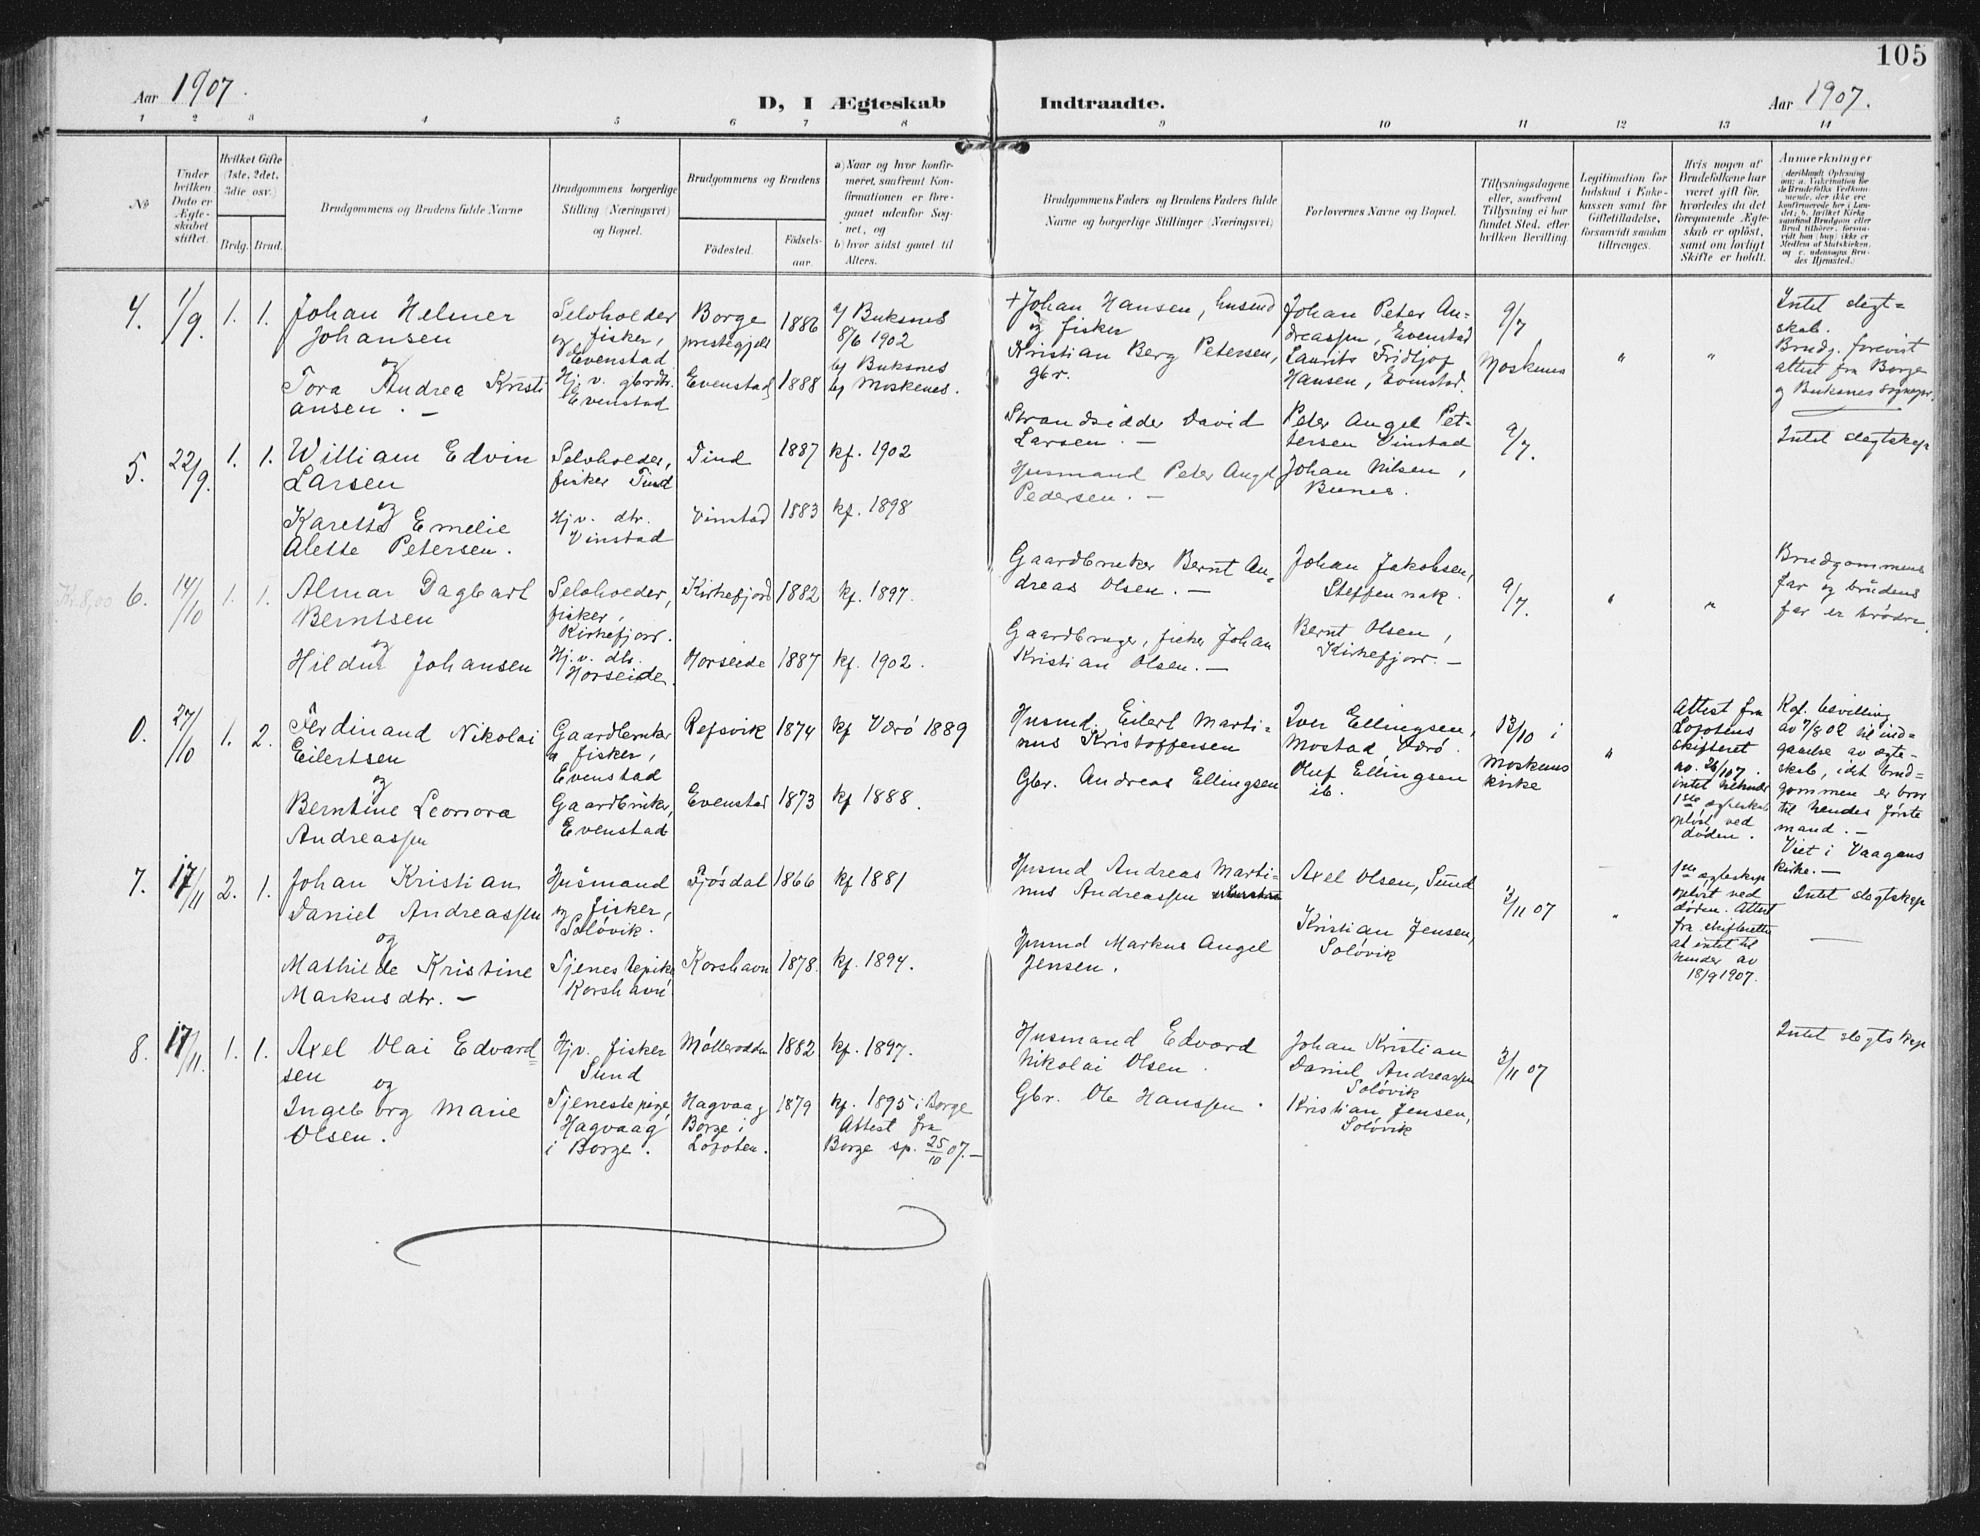 105
Aar 1907.
D, I Ægteskab Indtraadte.
Aar 1907.
1 2 3 4 5 6 7 8 9 10 11 12 13 14
№
Under
hvilken
Dato er
Ægte-
skabet
stiftet.
Hvilket Gifte
(1ste, 2det,
3die osv.)
Brdg. Brud.
Brudgommens og Brudens fulde Navne
Brudgommens borgerlige
Stilling (Næringsvei)
og Bopæl.
Brudgommens og Brudens
Födested.
Födsels-
aar.
a) Naar og hvor konfir-
meret, saafremt Kon-
firmationen er fore-
gaaet udenfor Sog-
net, og
b) hvor sidst gaaet til
Alters.
Brudgommens Faders og Brudens Faders fulde
Navne og borgerlige Stillinger (Næringsvei)
Forlovernes Navne og Bopæl.
Tillysningsdagene
eller, saafremt
Tillysning ei har
fundet Sted, efter
hvilken Bevilling.
Legitimation for
Indskud i Enke-
kassen samt for
Giftetilladelse,
forsaavidt saadan
tiltrænges.
Hvis nogen af
Brudefolkene har
været gift før,
hvorledes da det
foregaaende Ægte-
skab er oplöst,
samt om lovligt
Skifte er holdt.
Anmerkninger
(deriblandt Oplysning
om: a. Vakcination for
de Brudefolks Vedkom-
mende, der ikke ere
konfirmerede her i Lan-
det; b. hvilket Kirke-
samfund Brudgom eller
Brud tilhörer, forsaa-
vidt han (hun) ikke er
Medlem af Statskirken,
og c. udensogns Bru-
des Hjemsted.)
4. 1/9. 1. 1.
Johan Helmer
Johansen
og
Tora Andrea Kristi
ansen. —
Selvholder
og fisker,
Evenstad
Hj. v. gbrdtr.
Evenstad
Borge
prestegjeld
1886
a) Buksnes
8/6 1902
b) Buksnes
Evenstad 1888
b) Moskenes.
+ Johan Hansen, husmd
og fisker
Kristian Berg Petersen,
gbr.
Johan Peter An-
dreassen, Evenstad
Laurits Fridtjof
Hansen, Evenstad.
9/7
Moskenes
" "
Intet slegt=
skab.
Brudg. forevist
attest fra Borge
og Buksnes sognepr.
5. 22/9. 1. 1.
William Edvin
Larsen
og
Karette Emelie
Alette Petersen.
Selvholder,
fisker Tind
Hj. v. dtr.
Vinstad
Tind 1887 kf. 1902
Vinstad 1883 kf. 1898
Strandsidder David
Larsen. —
Husmand Peter Angel
Pedersen. —
Peter Angel Pet-
tersen Vinstad
Johan Nilsen,
Bunes.
9/7.
Intet slegtskap
Kr. 8,00 6. 14/10 1. 1.
Almar Dagbart
Berntsen
og
Hildur Johansen
Selvholder,
fisker,
Kirkefjor.
Hj. v. dtr.
Horseide.
Kirkefjord 1882 kf. 1897.
Horseide 1887 kf. 1902.
Gaardbruker Bernt An=
dreas Olsen. —
Gaardbruger, fisker Johan
Kristian Olsen. —
Johan Jakobsen,
Steffennak.
Bernt Olsen,
Kirkefjor. —
9/7.
" "
Brudgommens
far og brudens
far er brødre.
0. 27/10 1. 2.
Ferdinand Nikolai
Eilertsen
og
Berntine Leonora
Andreassen
Gaardbruker
o fisker,
Evenstad
Gaardbruker,
Evenstad
Refsvik 1874 kf Værö 1889
Evenstad 1873 kf 1888.
Husmd. Eilert Marti-
nus Kristoffersen
Gbr. Andreas Ellingsen
Iver Ellingsen,
Mostad, Værö.
Oluf Ellingsen
ib.
13/10 i
Moskenes
kirke
"
Attest fra
Lofotens
skifteret
av 26/10 7.
intet tilhinder
1ste ægteskab
opløst ved
døden.
Kgl. bevilling
av 7/8 02 til ind-
gaaelse av ægte-
skab, idet brud=
gommen er bror
til hendes første
mand. —
Viet i Vaagans
kirke. —
7. 17/11 2. 1.
Johan Kristian
Daniel Andreassen
og
Mathilde Kristine
Markusdtr. —
Husmand
og fisker,
Solövik.
Tjenestepike
Korshavn
Fjösdal 1866 kf 1881
Korshavn 1878. kf. 1894.
Husmd Andreas Marti-
nus Andreassen
Husmd Markus Angel
Jensen.
Axel Olsen, Sund
Kristian Jensen,
Solövik
3/11 07
"
1ste ægteskap
opløst ved
døden. Attest
fra skifteretten
at intet til
hinder av
18/9 1907.
Intet slegtskap
8. 17/11. 1. 1.
Axel Olai Edvard=
sen
og
Ingeborg Marie
Olsen.
Hjv. fisker
Sund
Tjenestepige,
Hagvaag
i Borge.
Möllerodden 1882 kf. 1897.
Hagvaag
Borge i
Lofoten.
1879
kf. 1895 i Borge
Attest fra
Borge sp. 25/10 07. —
Husmand Edvard
Nikolai Olsen.
Gbr. Ole Hanssen.
Johan Kristian
Daniel Andreassen
Solövik
Kristian Jensen,
Solövik
3/11 07
Intet slegtskap